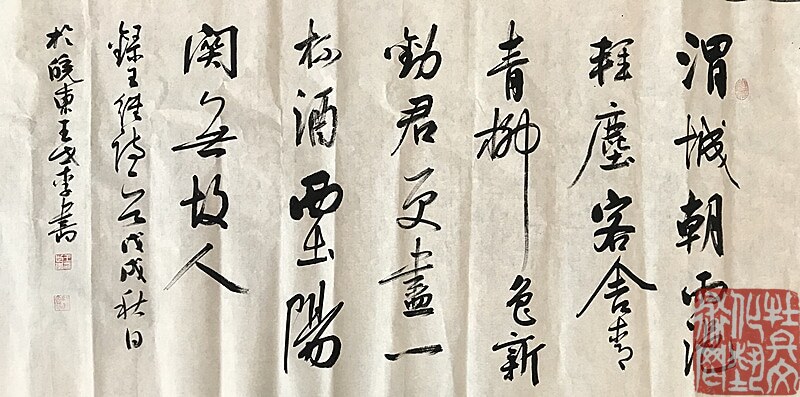 渭城朝雨浥
輕塵客舍青
青柳色新
勸君更盡一
杯酒西出陽
関無故人
錄王維詩戊戌秋日
於皖東王書